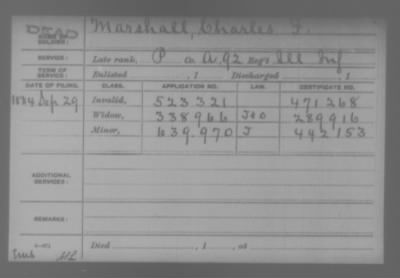 DEAD
NAME OF SOLDIER: Marshall, Charles F.
SERVICE: Late rank, P Co. A, 92 Reg't Ill Inf
TERM OF SERVICE: Enlisted , 1 Discharged , 1
DATE OF FILING. CLASS. APPLICATION NO. LAW. CERTIFICATE NO.
1884 Sep 29 Invalid, 523321 471268
Widow, 338966 J&O 239916
Minor, 639,970 J 442153
ADDITIONAL SERVICES:
REMARKS:
Died , 1 , at